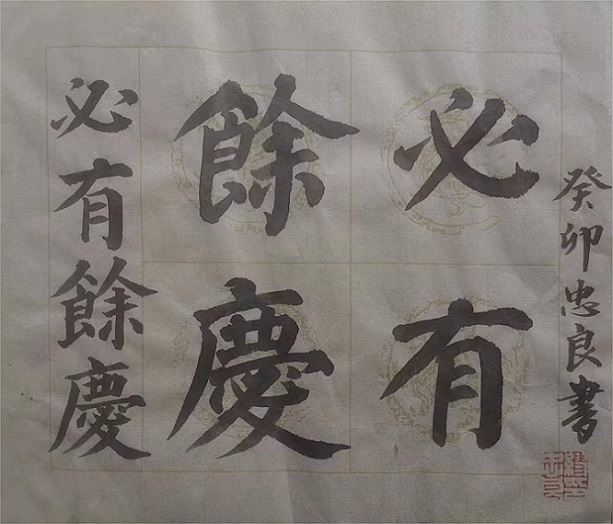 癸卯忠良書
必有
餘慶
必有餘慶